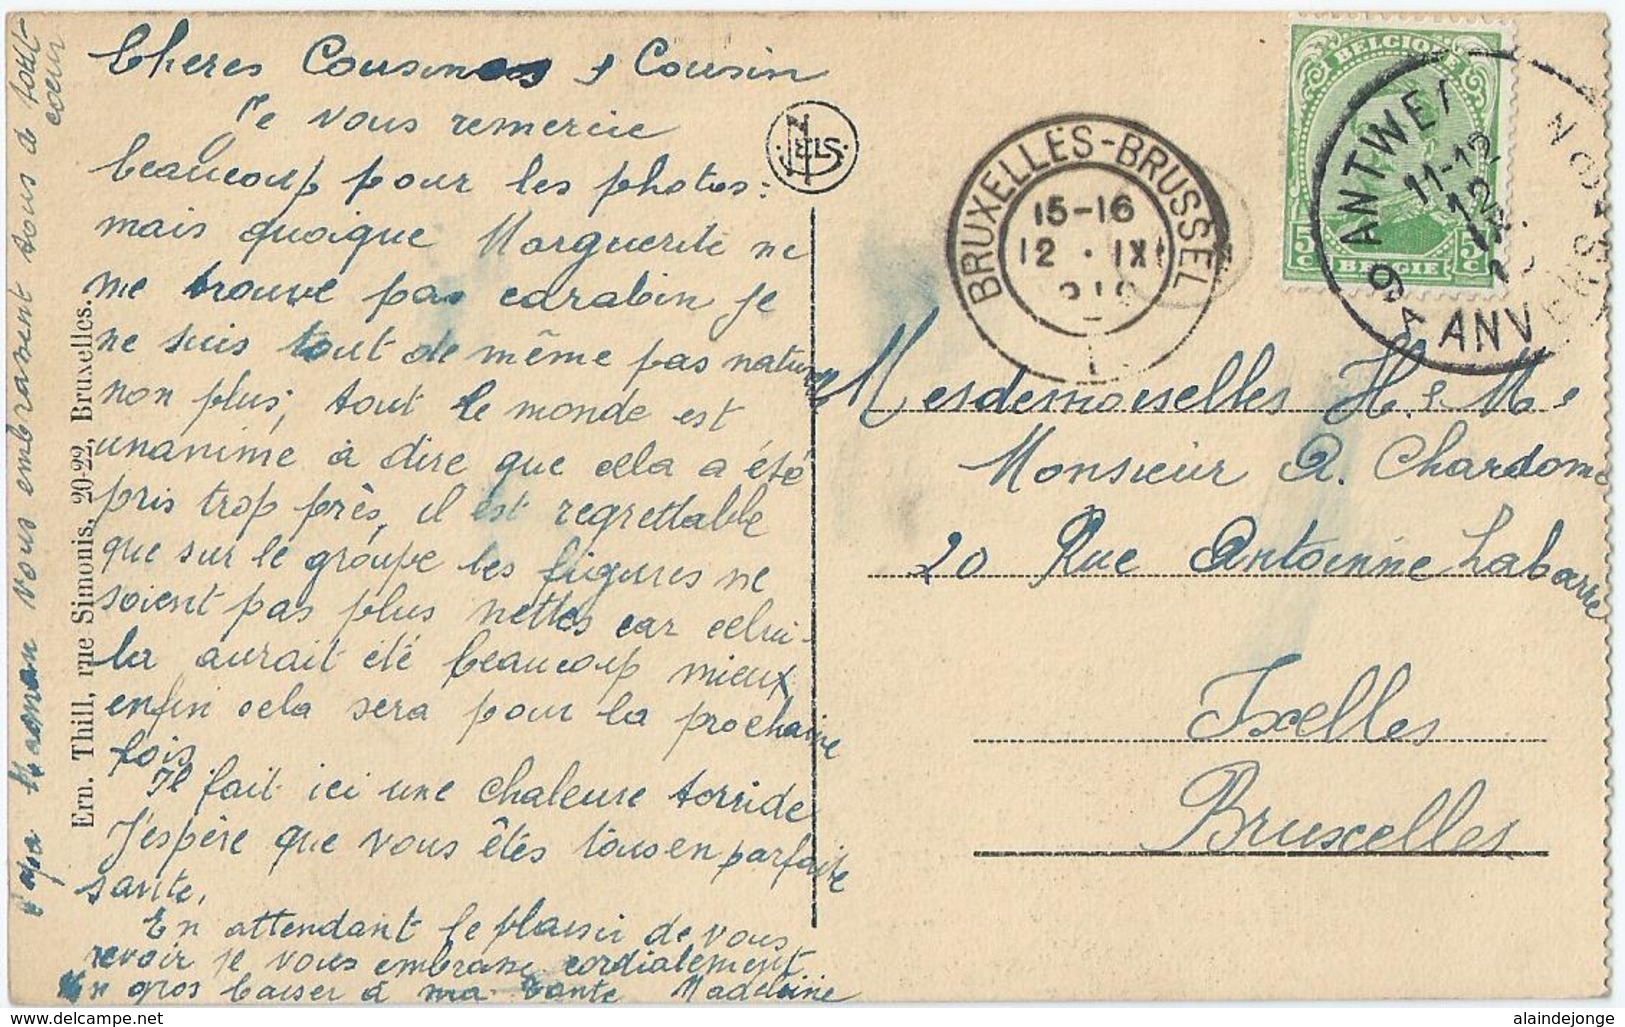 Cheres Cousines & Cousin
Je vous remercie
beaucoup pour les photos:
mais quoique Marguerite ne
me trouve pas carabin je
ne suis tout de même pas nature
non plus, tout le monde est
unanime à dire que cela a été
pris trop près, il est regrettable
que sur le groupe les figures ne
soient pas plus nettes car celui-
la aurait été beaucoup mieux
enfin cela sera pour la prochaine
fois
Il fait ici une chaleure torride
J'espère que vous êtes tous en parfaite
sante.
En attendant le plaisir de vous
revoir je vous embrasse cordialement
Un gros baiser à ma tante Madeleine
Papa Maman vous embrassent tous de tout
coeur
Ern. Thill, rue Simonis, 20-22, Bruxelles.
NELS
BRUXELLES-BRUSSEL
15-16
12 · IX
BELGIQUE
5 c 5 c
BELGIE
ANTWE
11-12
12
ANV
9 A
Mesdemoiselles H. & M. &
Monsieur A. Chardome
20 Rue Antoinne Labarre
Ixelles
Bruxelles
www.delcampe.net
alaindejonge